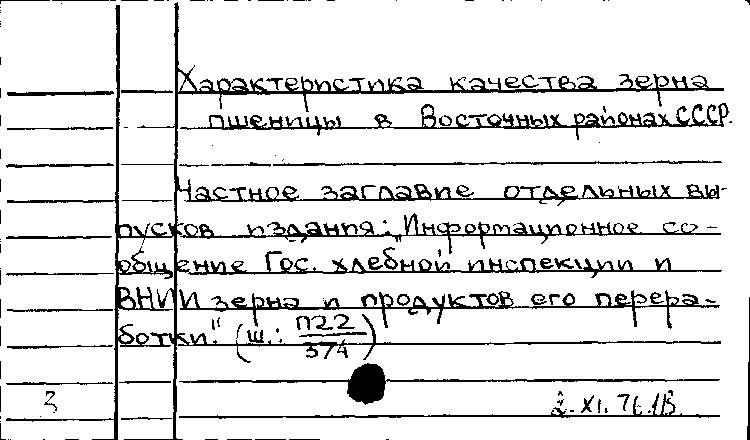 Характеристика качества зерна
пшеницы в Восточных районах СССР.
Частное заглавие отдельных вы-
пусков издания: „Информационное со-
общение Гос. хлебной инспекции и
ВНИИ зерна и продуктов его перера-
ботки." (ш.: П22/374)
3
2.XI.76.